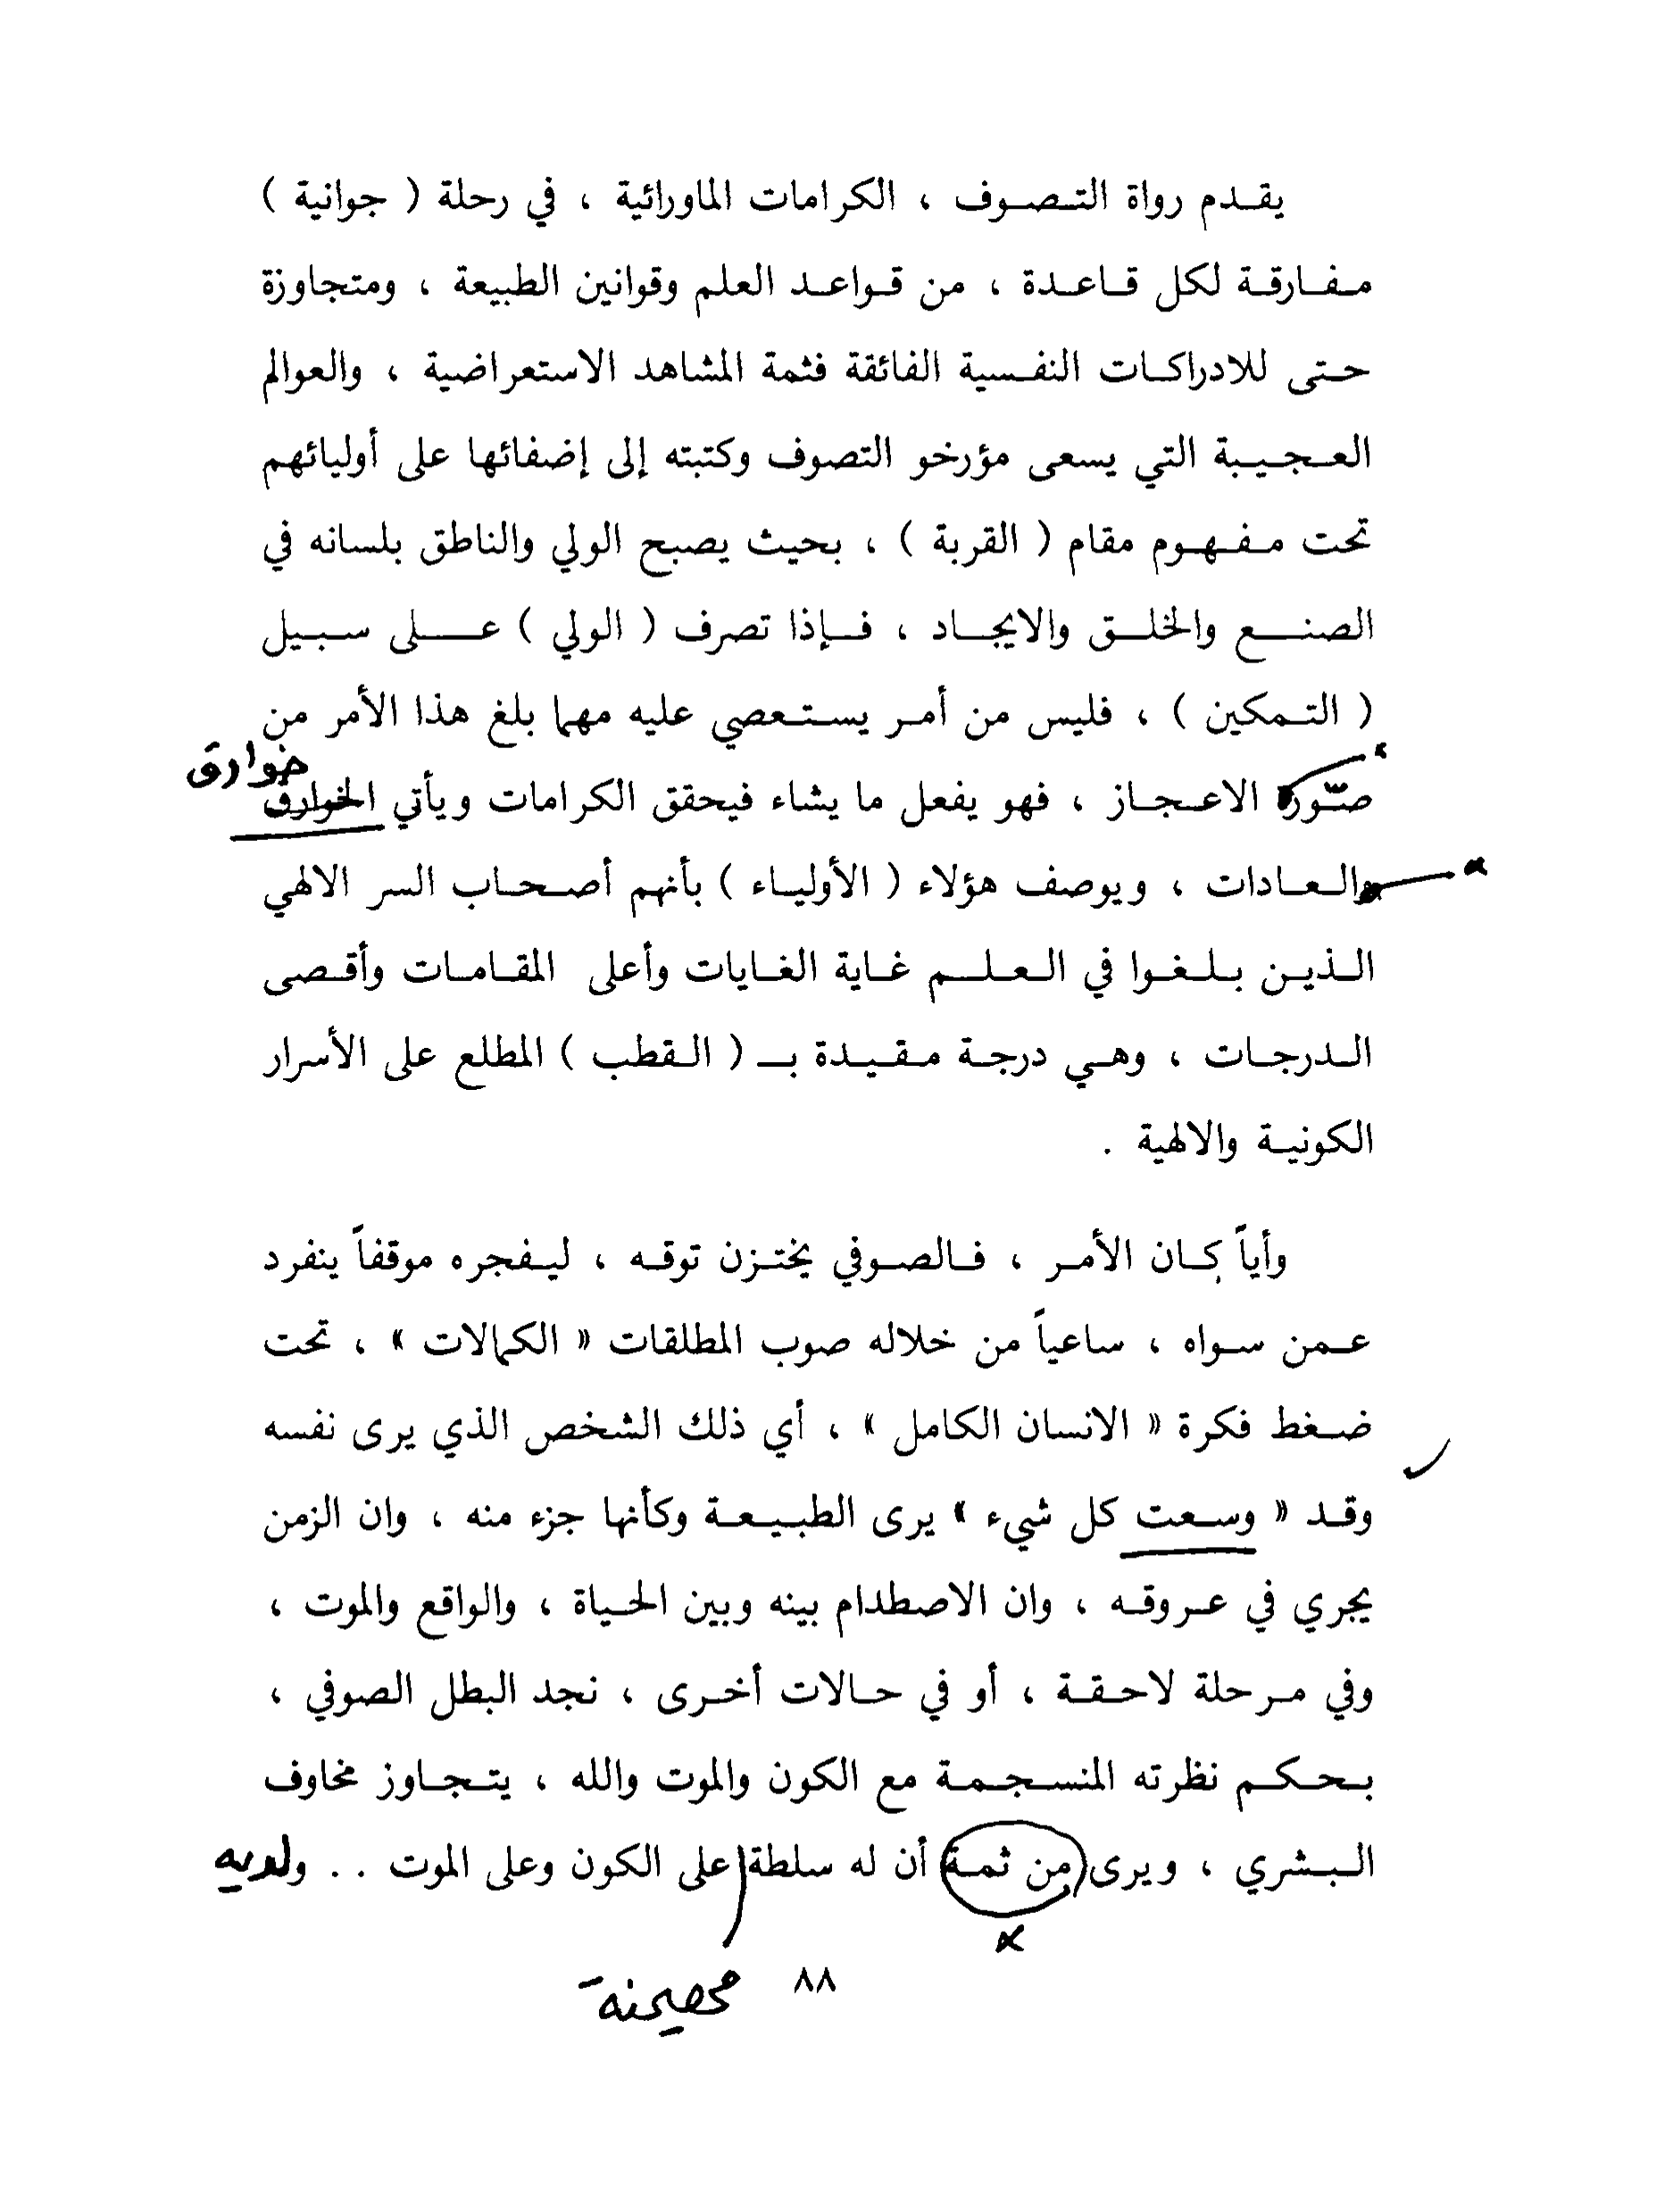 يقدم رواة التصوف ، الكرامات الماورائية ، في رحلة ( جوانية )
مفارقة لكل قاعدة ، من قواعد العلم وقوانين الطبيعة ، ومتجاوزة
حتى للادراكات النفسية الفائقة فثمة المشاهد الاستعراضية ، والعوالم
العجيبة التي يسعى مؤرخو التصوف وكتبته إلى إضفائها على أوليائهم
تحت مفهوم مقام ( القربة ) ، بحيث يصبح الولي والناطق بلسانه في
الصنع والخلق والايجاد ، فإذا تصرف ( الولي ) على سبيل
( التمكين ) ، فليس من أمر يستعصي عليه مهما بلغ هذا الأمر من
خوارق
صورة الاعجاز ، فهو يفعل ما يشاء فيحقق الكرامات ويأتي الخوارق
والعادات ، ويوصف هؤلاء ( الأولياء ) بأنهم أصحاب السر الالهي
الذين بلغوا في العلم غاية الغايات وأعلى المقامات وأقصى
الدرجات ، وهي درجة مقيدة بـ ( القطب ) المطلع على الأسرار
الكونية والالهية .
وأياً كان الأمر ، فالصوفي يختزن توقه ، ليفجره موقفاً ينفرد
عمن سواه ، ساعياً من خلاله صوب المطلقات « الكمالات » ، تحت
ضغط فكرة « الانسان الكامل » ، أي ذلك الشخص الذي يرى نفسه
وقد « وسعت كل شيء » يرى الطبيعة وكأنها جزء منه ، وان الزمن
يجري في عروقه ، وان الاصطدام بينه وبين الحياة ، والواقع والموت ،
وفي مرحلة لاحقة ، أو في حالات أخرى ، نجد البطل الصوفي ،
بحكم نظرته المنسجمة مع الكون والموت والله ، يتجاوز مخاوف
البشري ، ويرى من ثمة أن له سلطة على الكون وعلى الموت . . ولديه
٨٨